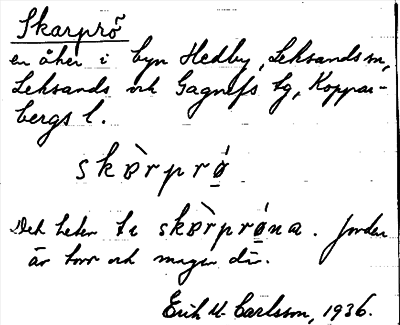 Skarprö
en åker i byn Hedby, Leksands sn,
Leksands och Gagnefs tg, Koppar-
bergs l.
skàrprǿ
Det heter te skàrprǿna. Jorden
är torr och mager där.
Erik O. Carlsson, 1936.